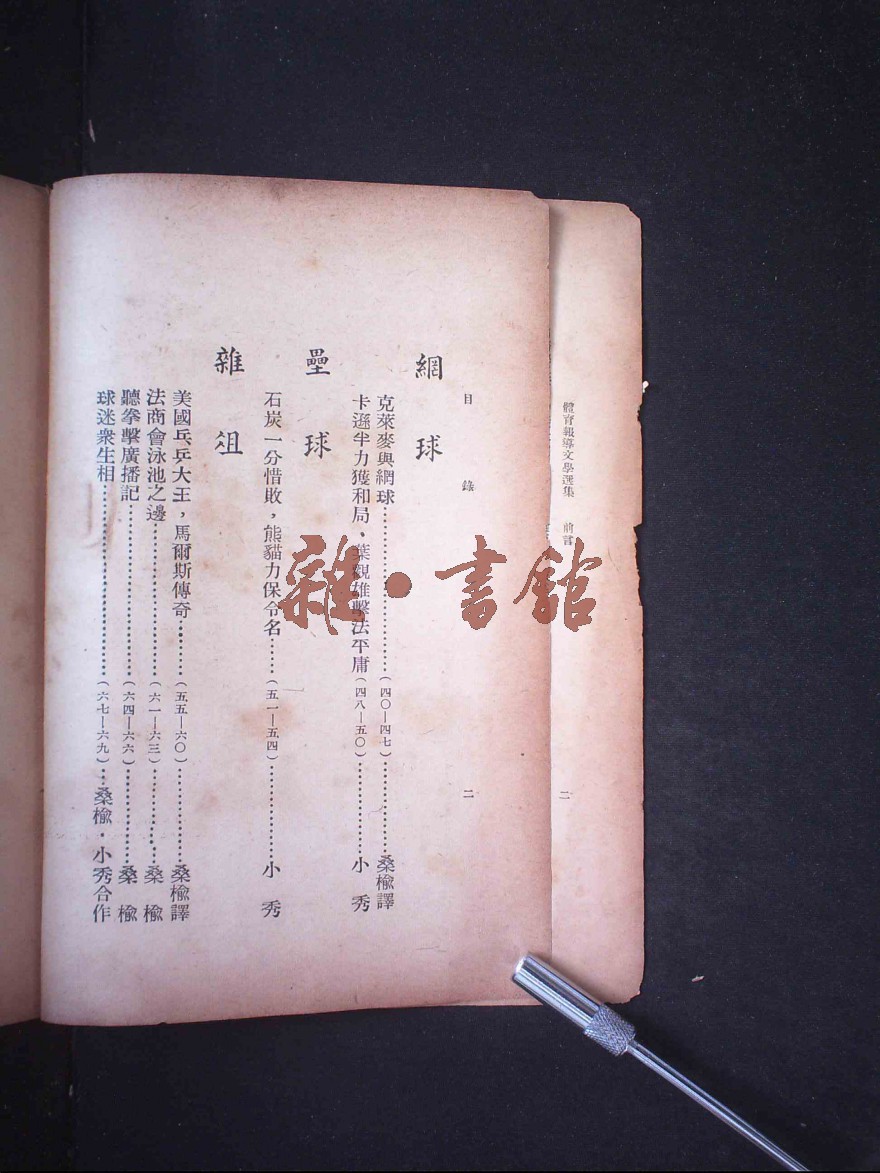 體育報導文學選集 前言 二
目錄 二
網球
克萊麥與網球……………………(四〇—四七)……………桑楡譯
卡遜半力獲和局,葉觀雄擊法平庸(四八—五〇)……………小秀
壘球
石炭一分惜敗,熊貓力保令名……(五一—五四)……………小秀
雜俎
美國乓乒大王,馬爾斯傳奇………(五五—六〇)……………桑楡譯
法商會泳池之邊……………………(六一—六三)……………桑楡
聽拳擊廣播記………………………(六四—六六)……………桑楡
球迷衆生相…………………………(六七—六九)…桑楡·小秀合作
雜·書館